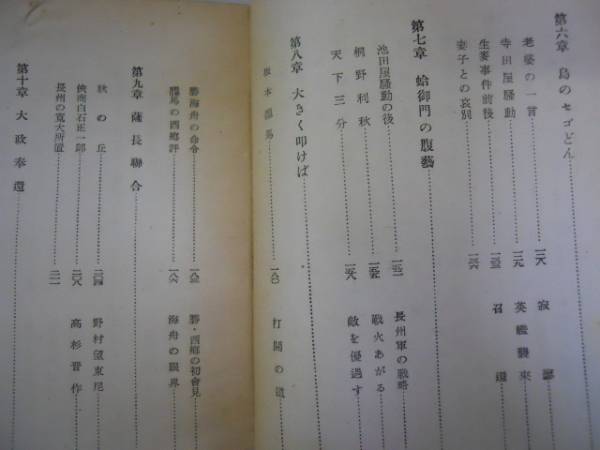 第六章 島のセゴどん
老婆の一言……一二八 寂寥
寺田屋騒動……一二九 英艦襲来
生麦事件前後……一三五 召還
妻子との哀別……一四六
第七章 蛤御門の腹藝
池田屋騒動の後……一五一 長州軍の戦略
桐野利秋……一五五 戦火あがる
天下三分……一五八 敵を優遇す
第八章 大きく叩けば
坂本龍馬……一八〇 打開の道
勝海舟の命令……一八三 勝・西郷の初會見
龍馬の西郷評……一八六 海舟の眼界
第九章 薩長聯合
秋の丘……二〇四 野村望東尼
侠商白石正一郎……二〇八 高杉晋作
長州の寛大所置……二一一
第十章 大政奉還